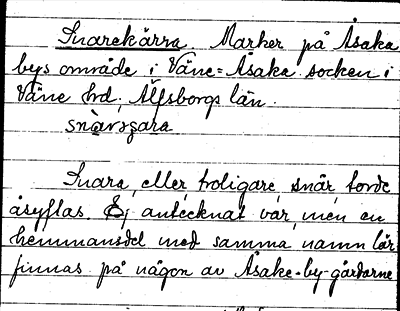 Snarekärra. Marker på Åsaka
bys område i Väne=Åsaka socken i
Väne hrd, Älfsborgs län.
snàrsgara
Snara, eller troligare snår torde
åsyftas. Ej antecknat var, men en
hemmansdel med samma namn lär
finnas på någon av Åsaka-by-gårdarne